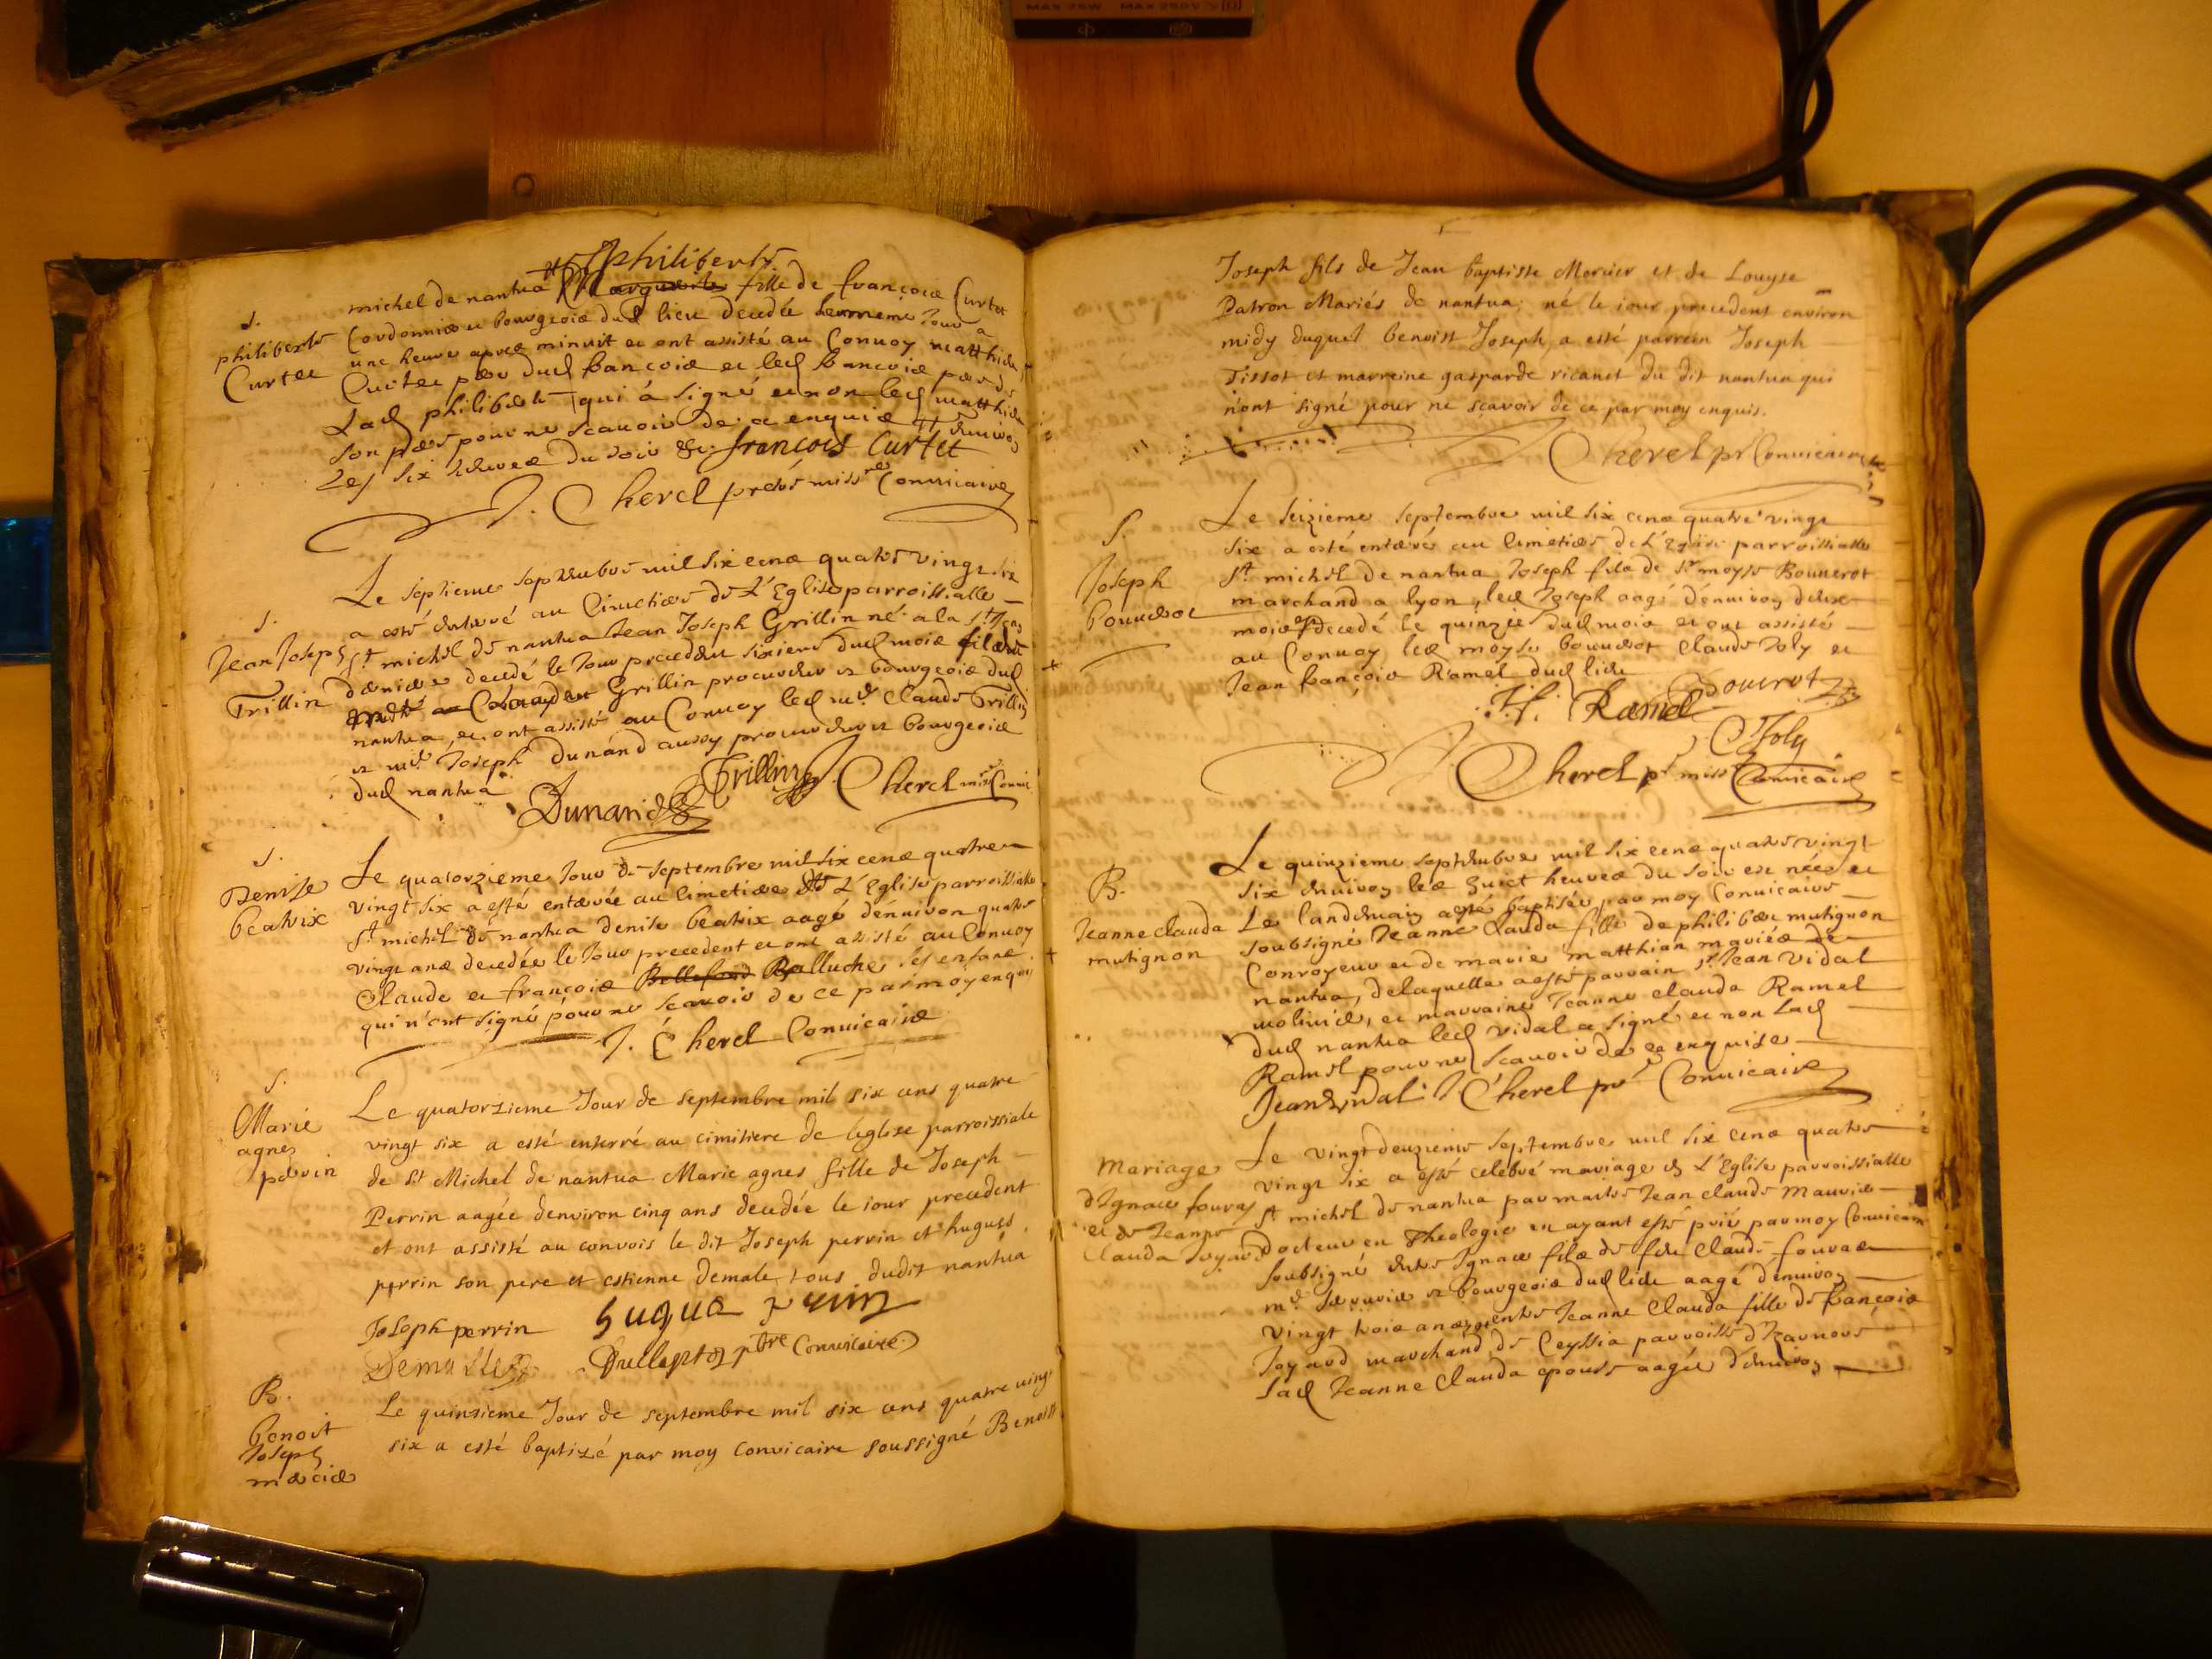 philiberte
michel de nantua Marguerite fille de françois Curtet
S.
philiberte
Curtet
Cordonnier et bourgeois dud lieu decedée le mesme Jour a
une heure apres minuit et ont assisté au Convoy matthieu
Curtet pere dud francois et led francois pere de
Lad philiberte qui à signé et non led matthieu
son pere pour ne scavoir de ce enquis
les six heures du soir françois Curtet
J. Cherel prebt missre Convicaire
Le septieme septembre mil six cens quatre vingt six
S.
Jean Joseph
Grillin
a esté enterré au Cimetiere de L'Eglise parroissialle
St michel de nantua Jean Joseph Grillin né a la St Jean
derniere decedé le Jour precedent sixieme dud mois fils de
Grillin procureur et bourgeois dud
nantua, et ont assisté au Convoy led me Claude Grillin
et me Joseph Dunand aussy procureur et bourgeois
dud nantua
Dunand Grillin J. Cherel missre Convic
S.
Denise
beatrix
Le quatorzieme Jour de septembre mil six cens quatre
vingt six a esté enterrée au cimetiere de L'Eglise parroissialle
St michel de nantua denise beatrix aagé d'environ quatre
vingt ans decedée le Jour precedent et ont assisté au Convoy
Claude et françois Balluche ses enfans
qui n'ont signé pour ne scavoir de ce par moy enquis
J. Cherel Convicaire
S.
Marie
agnes
perrin
Le quatorzieme Jour de septembre mil six cens quatre
vingt six a esté enterré au cimitiere de l'eglise parroissiale
de St Michel de nantua Marie agnes fille de Joseph
Perrin aagée denviron cinq ans decedée le iour precedent
et ont assisté au convois le dit Joseph perrin et hugues
perrin son pere et estienne demale tous dudit nantua
Joseph perrin hugue perrin
Demalle ptre Convicaire
B.
benoit
Joseph
mercier
Le quinsieme Jour de septembre mil six cens quatre vingt
six a esté baptizé par moy Convicaire soussigné Benoist
Joseph fils de Jean baptiste Mercier et de Louyse
Patron Mariés de nantua, né le iour precedent environ
midy duquel benoist Joseph, a esté parrein Joseph
Tissot et marreine gasparde ricanet du dit nantua qui
n'ont signé pour ne sçavoir de ce par moy enquis.
Cherel pr Convicaire
S.
Joseph
bouuerot
Le seizieme septembre mil six cens quatre vingt
six a esté enterré au cimetiere de L'Eglise parroissialle
St michel de nantua Joseph fils de sr moyse Bouuerot
marchand a lyon, led Joseph aagé denviron deux
mois decedé le quinzie dud mois et ont assisté
au Convoy led moyse bouuerot Claude Joly et
Jean françois Ramel dud lieu
J.f. Ramel Bouerot
C Joly
J. Cherel pr miss Convicaire
B.
Jeanne Clauda
mutignon
Le quinzieme septembre mil six cens quatre vingt
six environ les huict heures du soir est née et
Le landemain a esté baptisée par moy Convicaire
soubsigné Jeanne Clauda fille de philibert mutignon
Conroyeur et de marie matthian mariés de
nantua, de laquelle a esté parrain sr Jean Vidal
molinier, et marraine Jeanne Clauda Ramel
dud nantua led vidal a signé et non lad
Ramel pour ne sçavoir de ce enquise
Jean vidal J Cherel pr Convicaire
Mariage
d'Ignace fouras
et de Jeanne
Clauda Joyard
Le vingt deuzieme septembre mil six cens quatre
vingt six a esté celebré mariage en L'Eglise parroissialle
St michel de nantua par maitre Jean Claude Maurier
Docteur en Theologie en ayant esté prié par moy Convicaire
soubsigné entre Ignace fils de feu Claude fouras
me serrurier et bourgeois dud lieu aagé d'environ
vingt trois ans et entre Jeanne Clauda fille de françois
Joyard marchand de Ceyssia parroisse d'Izarnore
lad Jeanne Clauda epouse aagée d'environ